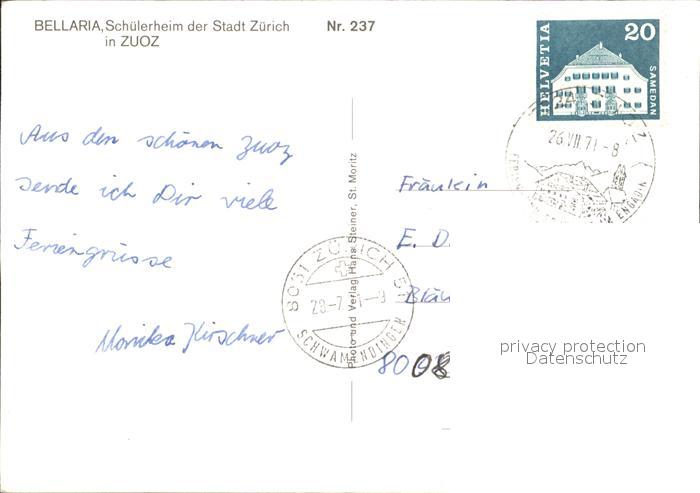 BELLARIA, Schülerheim der Stadt Zürich Nr. 237
in ZUOZ
HELVETIA 20
SAMEDAN
26.VII.71.-8
ENGADIN
Aus den schönen Zuoz
sende ich Dir viele
Feriengrüsse
Monika Kirschner
Photo und Verlag Hans Steiner, St. Moritz
8051 ZÜRICH 51
SCHWAMENDINGEN
Fräulein
E. D.
8008
privacy protection
Datenschutz